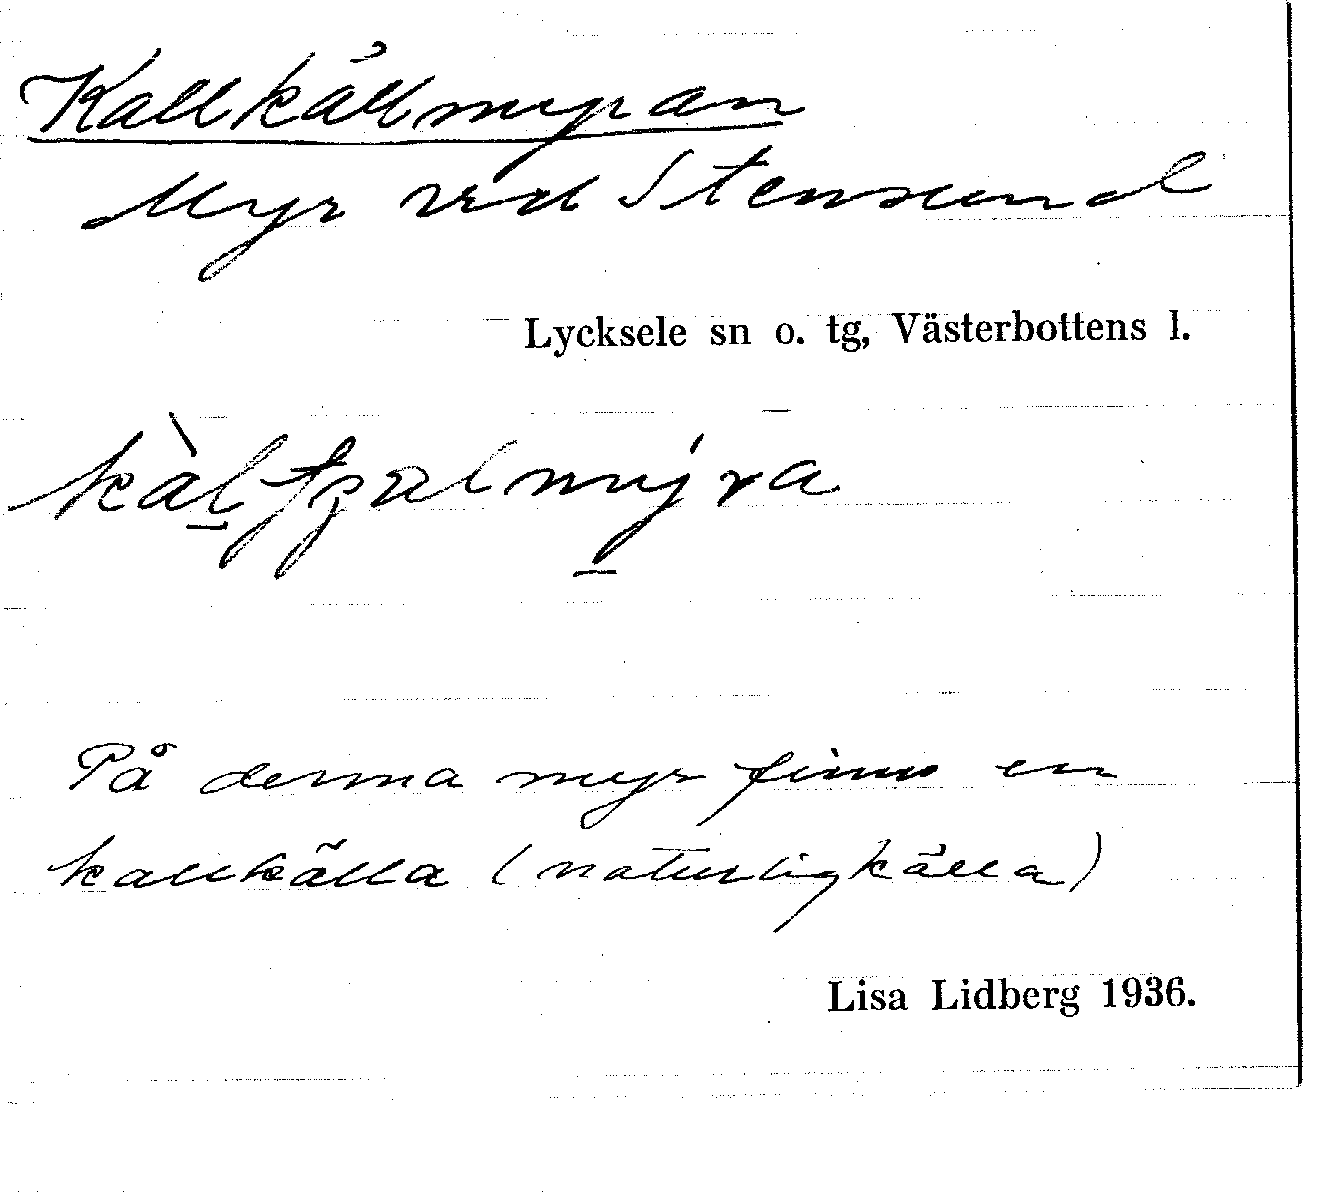 Kallkällmyran
Myr vid Stensund
Lycksele sn o. tg, Västerbottens l.
På denna myr finns en
kallkälla (naturlig källa)
Lisa Lidberg 1936.